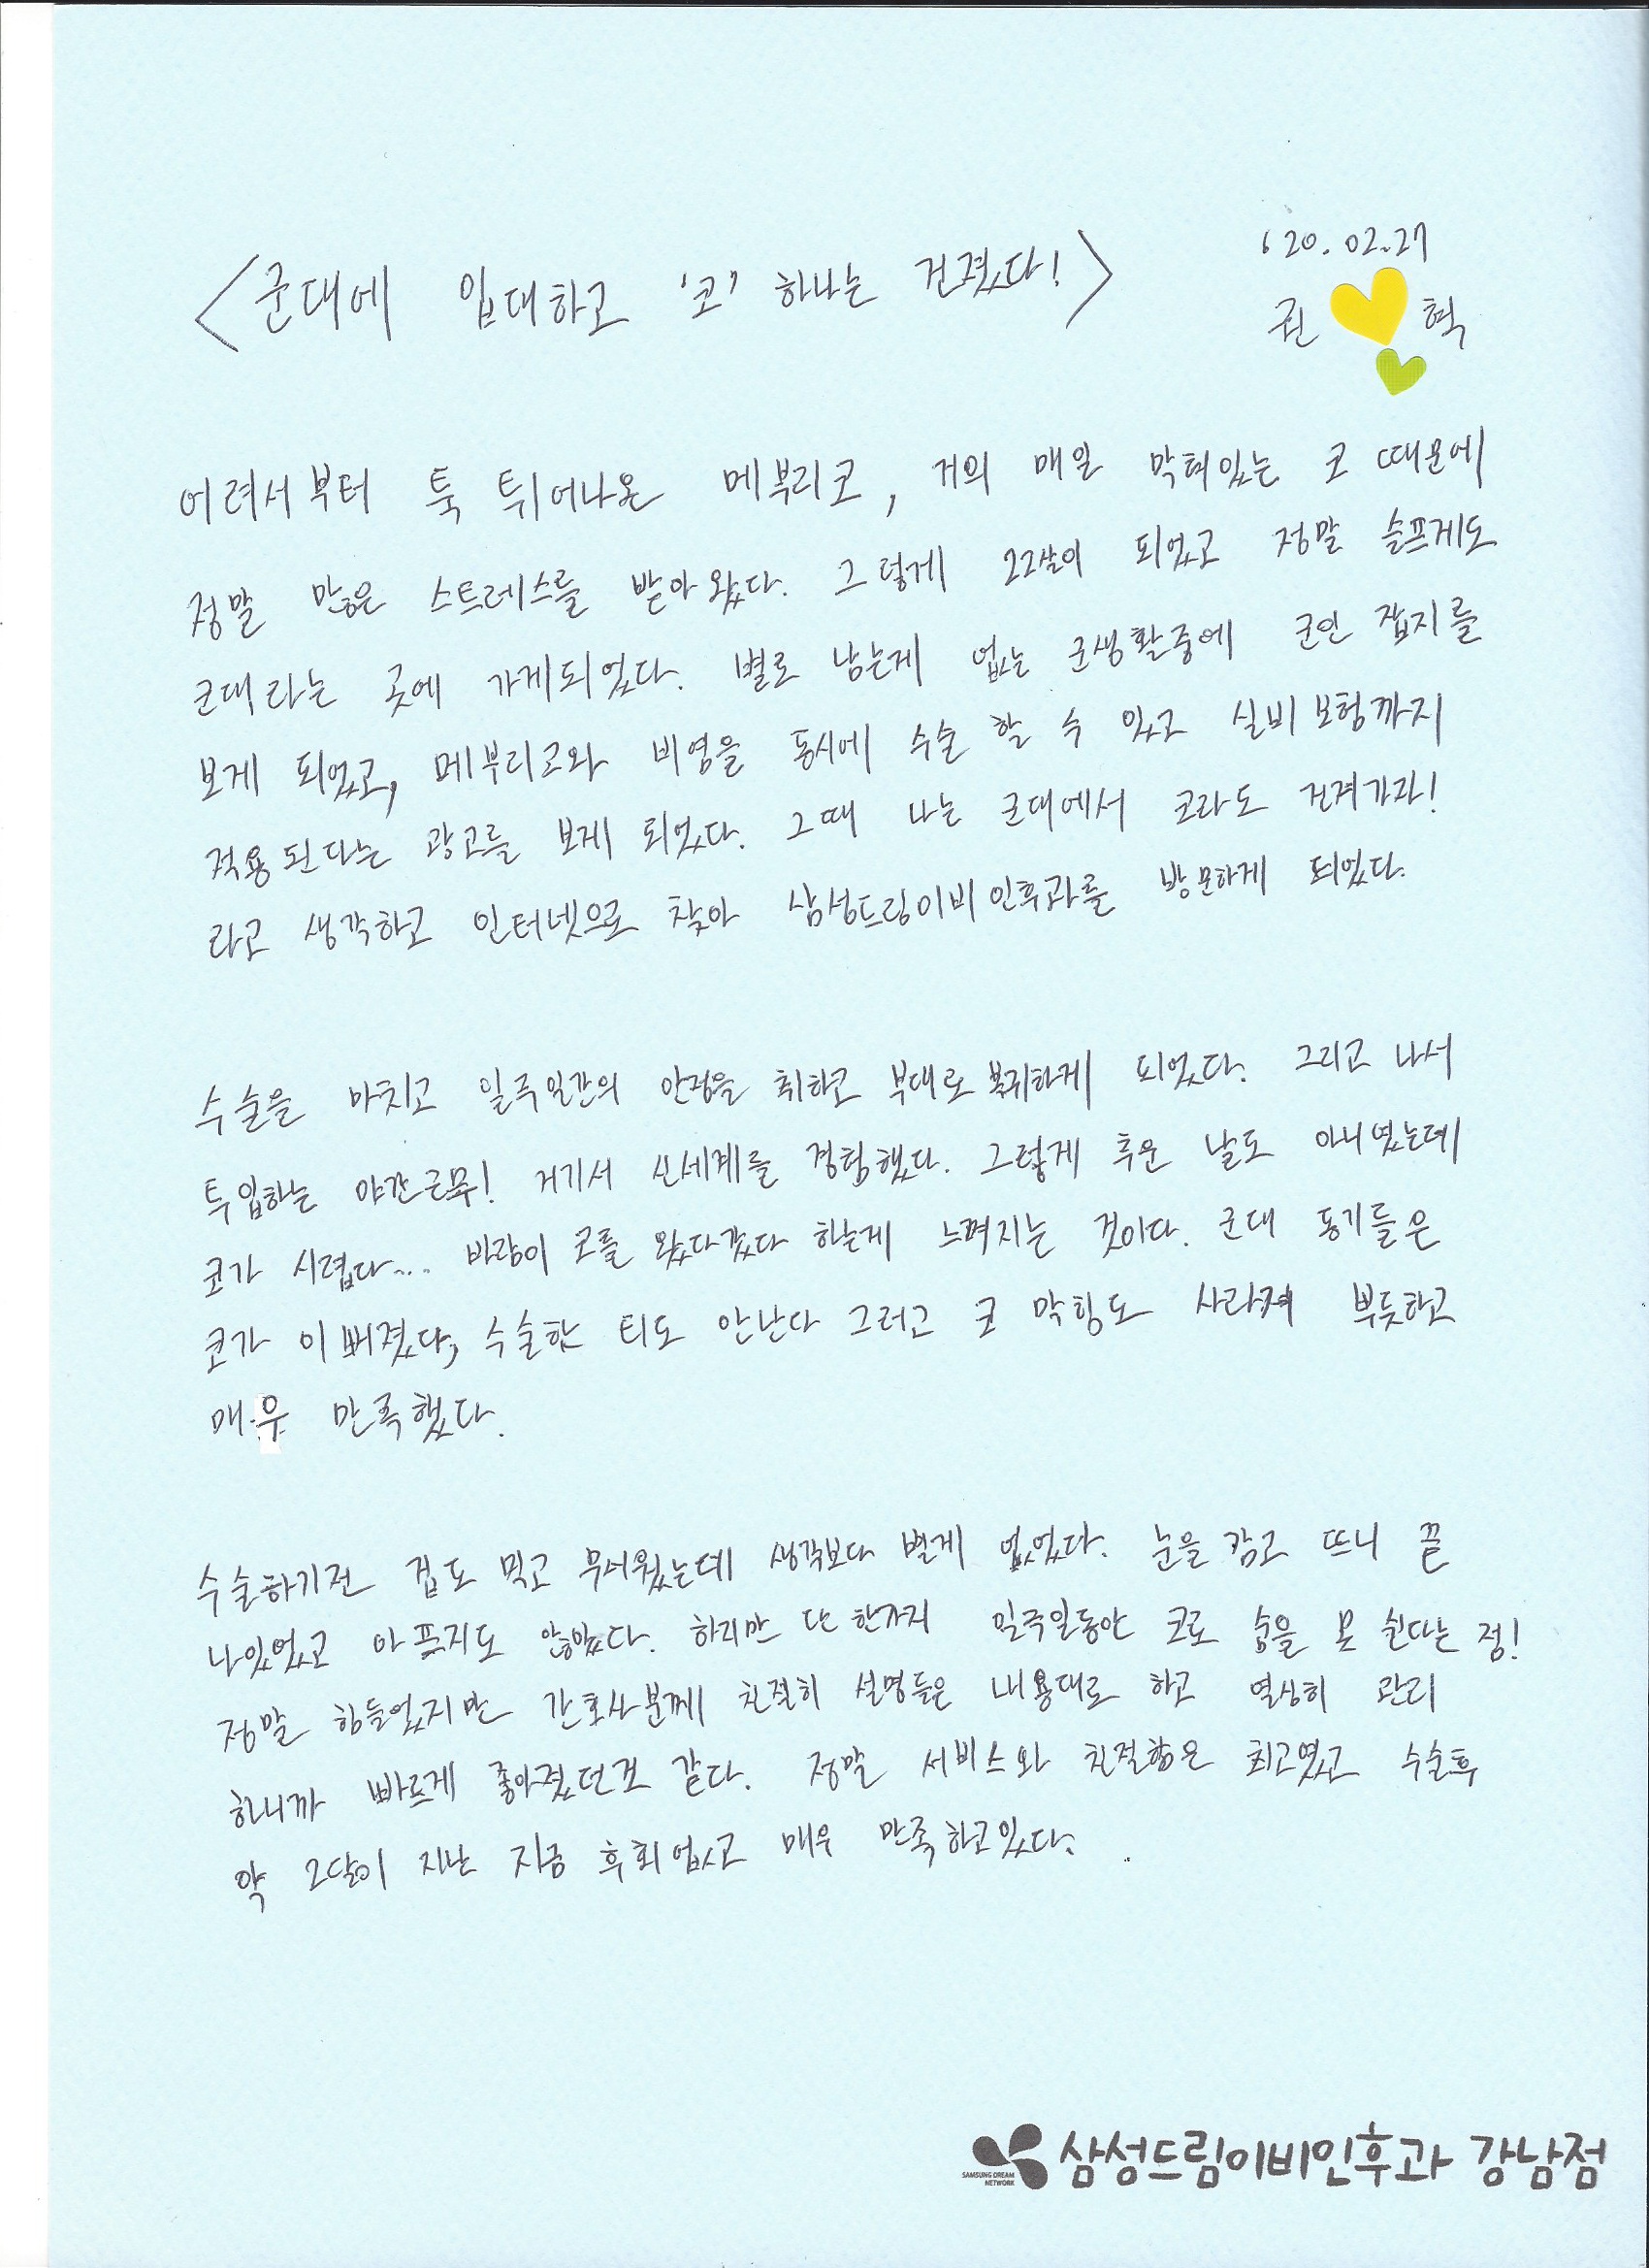 <군대에 입대하고 '코' 하나는 건졌다!>
'20. 02. 27
권 혁
어려서부터 툭 튀어나온 메부리코, 거의 매일 막혀있는 코 때문에
정말 많은 스트레스를 받아 왔다. 그렇게 22살이 되었고 정말 슬프게도
군대라는 곳에 가게되었다. 별로 남는게 없는 군생활중에 군인 잡지를
보게 되었고, 메부리코와 비염을 동시에 수술 할 수 있고 실비보험까지
적용된다는 광고를 보게 되었다. 그때 나는 군대에서 코라도 건져가자!
라고 생각하고 인터넷으로 찾아 삼성드림이비인후과를 방문하게 되었다.
수술을 마치고 일주일간의 안정을 취하고 부대로 복귀하게 되었다. 그리고 나서
투입하는 야간근무! 거기서 신세계를 경험했다. 그렇게 추운 날도 아니였는데
코가 시렵다... 바람이 코를 왔다갔다 하는게 느껴지는 것이다. 군대 동기들은
코가 이뻐졌다, 수술한 티도 안난다 그러고 코 막힘도 사라져 뿌듯하고
매우 만족했다.
수술하기전 겁도 먹고 무서웠는데 생각보다 별게 없었다. 눈을 감고 뜨니 끝
나있었고 아프지도 않았다. 하지만 단 한가지 일주일동안 코로 숨을 못 쉰다는 점!
정말 힘들었지만 간호사분께 친절히 설명들은 내용대로 하고 열심히 관리
하니까 빠르게 좋아졌던것 같다. 정말 서비스와 친절함은 최고였고 수술후
약 2달이 지난 지금 후회없고 매우 만족하고있다.
SAMSUNG DREAM NETWORK 삼성드림이비인후과 강남점